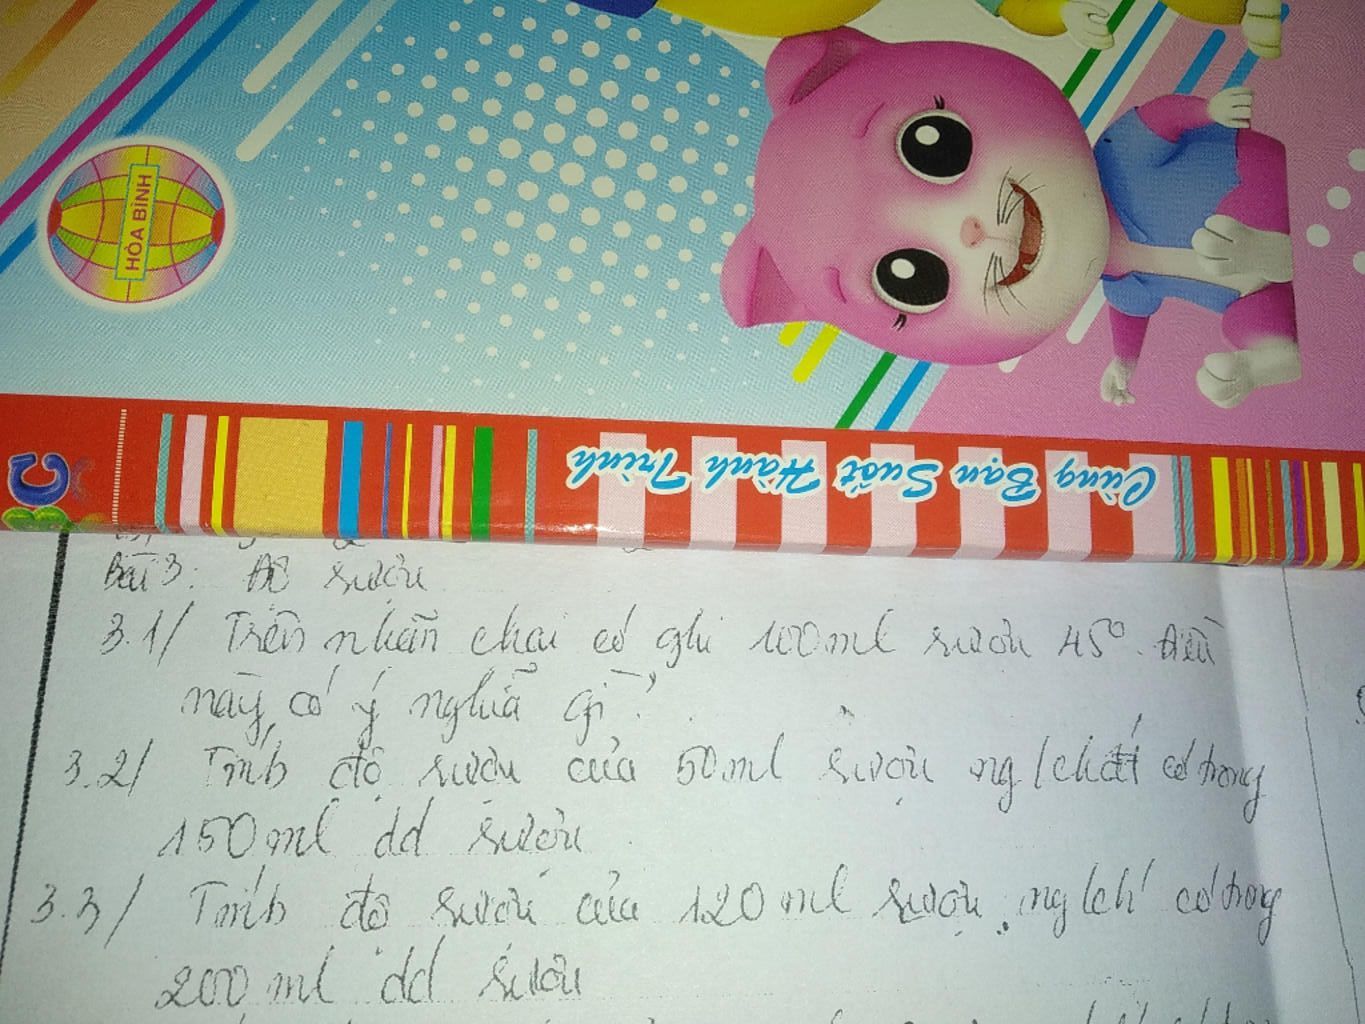 HÒA BÌNH
Cùng Bạn Suốt Hành Trình
BC
Bài 3: Độ rượu
3.1/ Trên nhãn chai có ghi 100ml rượu 45°. Điều
này có ý nghĩa gì?
3.2/ Tính độ rượu của 50ml rượu ng/chất có trong
150ml dd rượu
3.3/ Tính độ rượu của 120ml rượu ng/ch có trong
200ml dd rượu